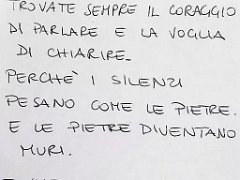 TROVATE SEMPRE IL CORAGGIO
DI PARLARE E LA VOGLIA
DI CHIARIRE.
PERCHÈ I SILENZI
PESANO COME LE PIETRE.
E LE PIETRE DIVENTANO
MURI.